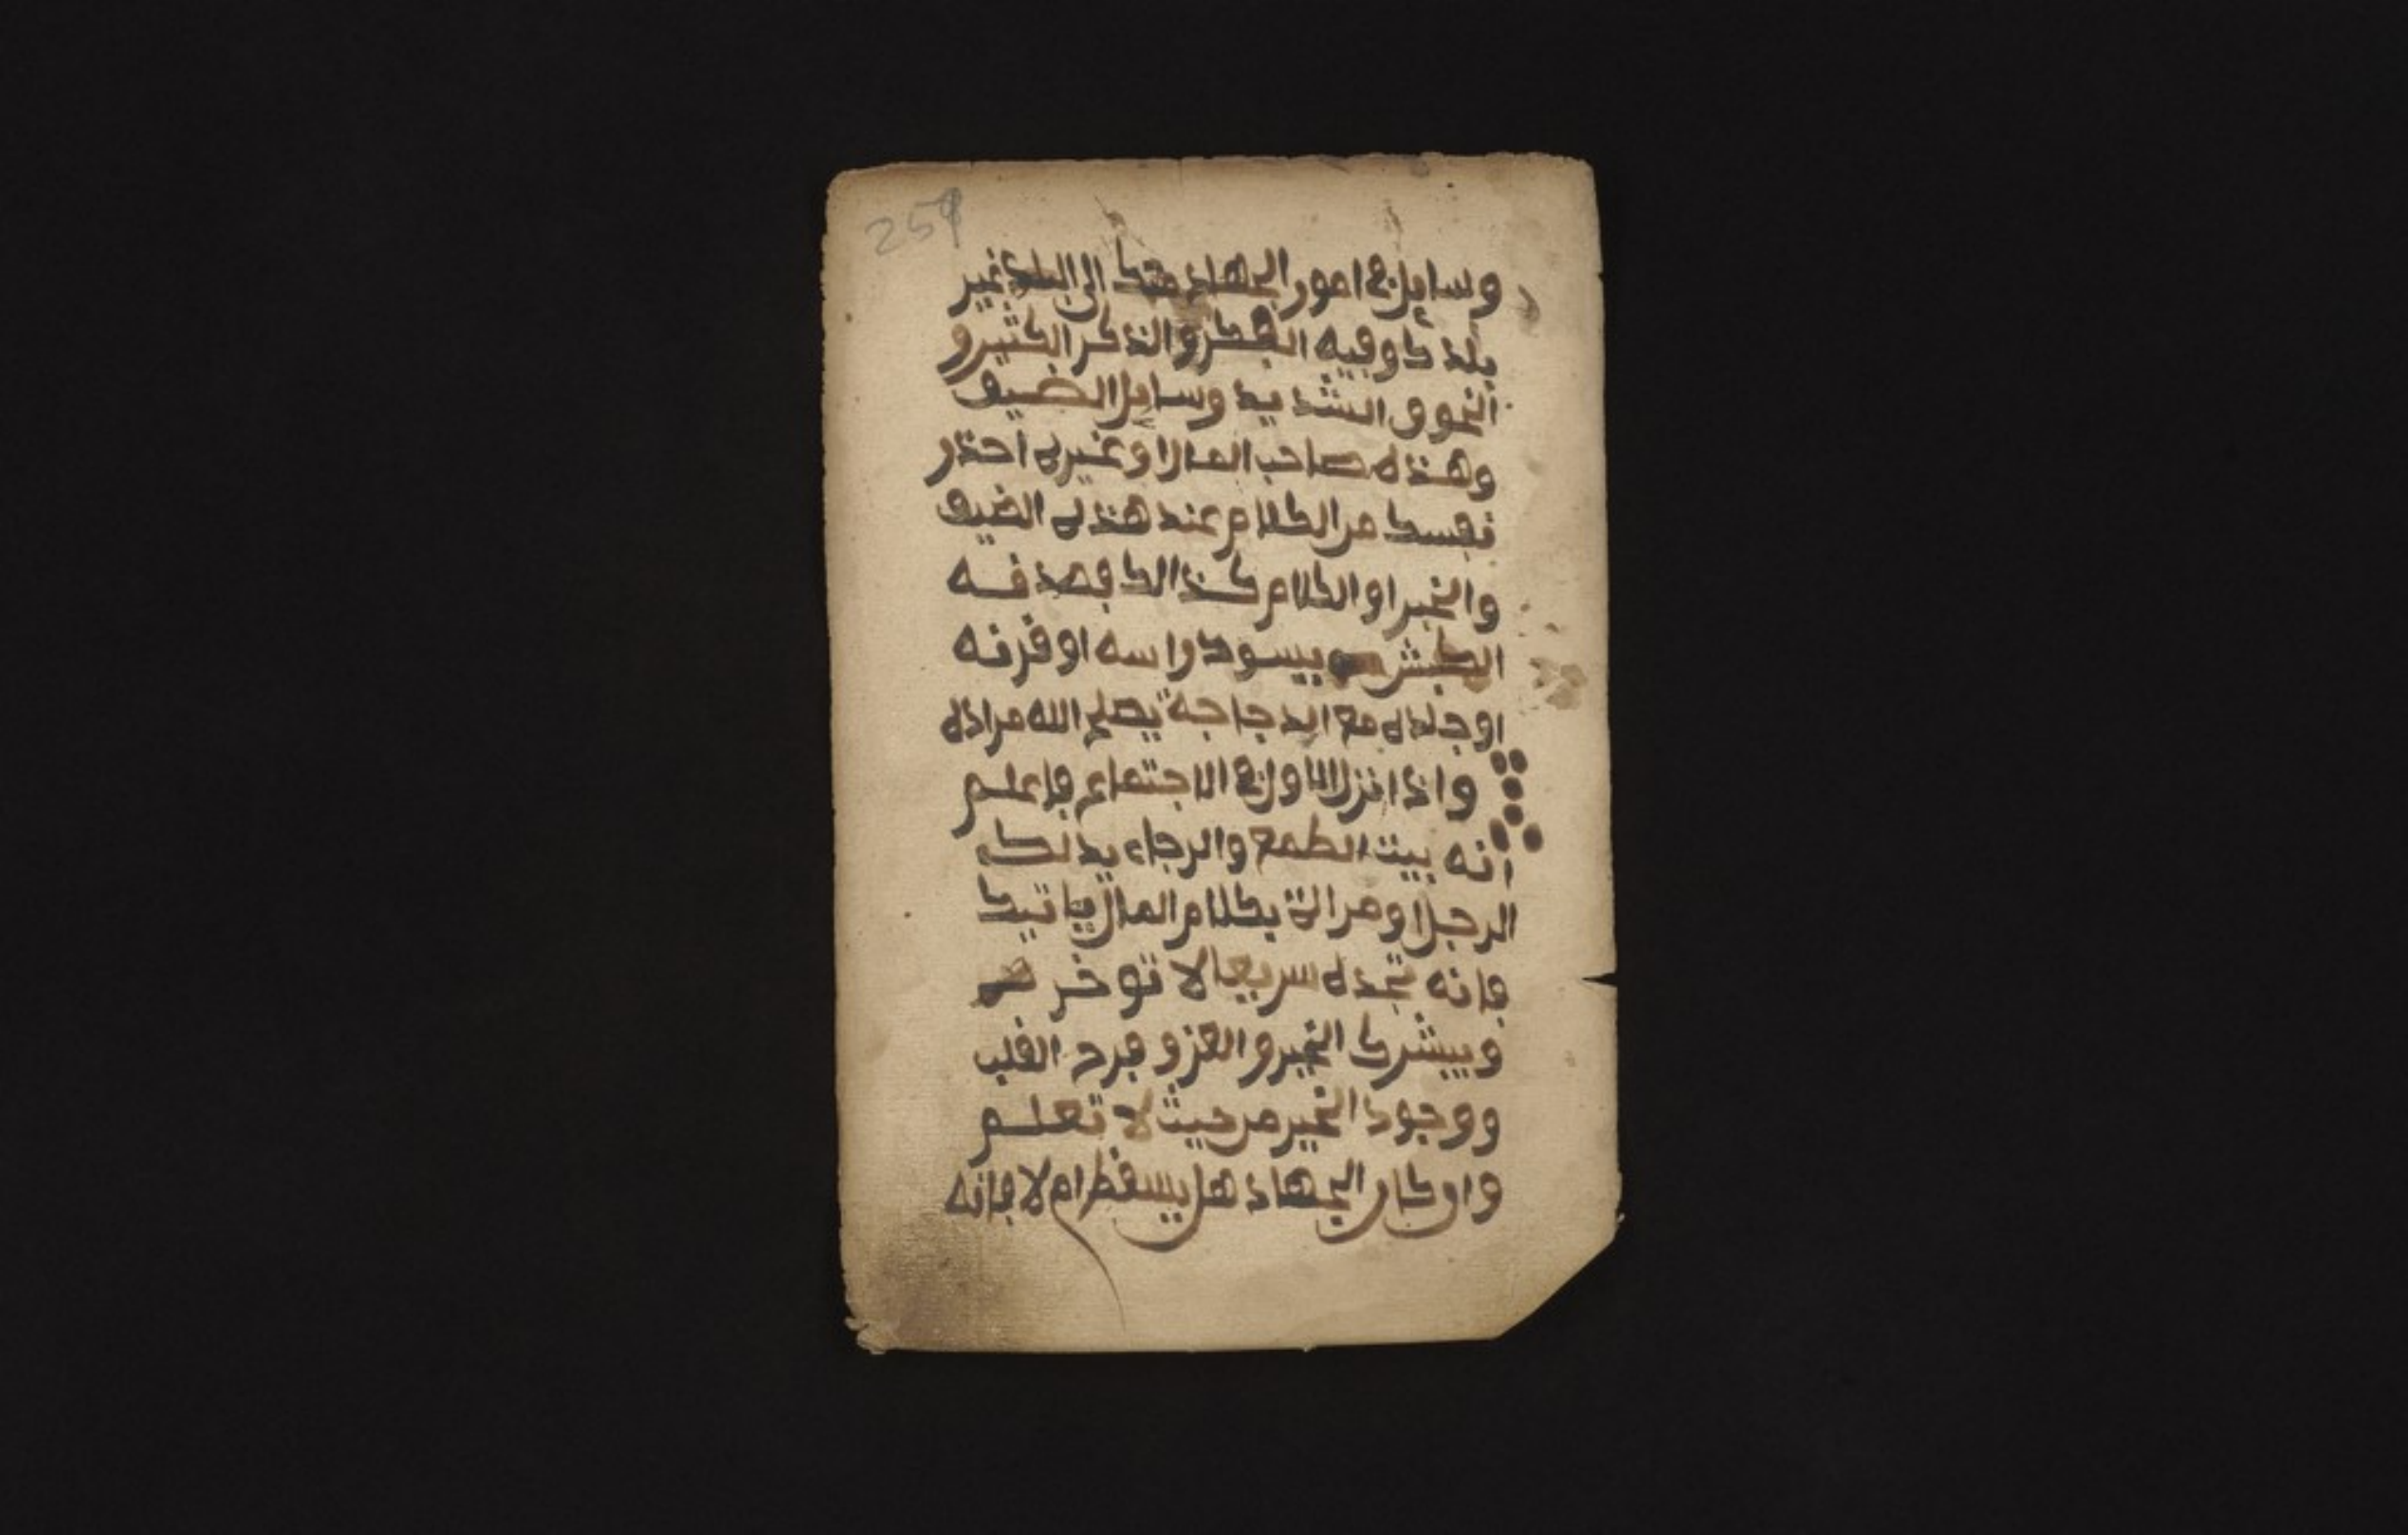 259
وسايل في امور الجهاد حتك الى البلد غير
بلدك وفيه الفكر والذكر الكثير و
الخوف الشديد وسايل الضيف
وهذه صاحب المال او غيره احذر
نفسك من الكلام عند هذه الضيف
والخبر او الكلام كذالك فصدقه
الكبش بيسود راسه او قرنه
او جلده مع الدجاجة يصلح الله مراده
واذا نزل الاول في الاجتماع فاعلم
انه بيت الطمع والرجاء يدلك
الرجل او مراة بكلام المال ياتيك
فانه تجده سريعا لا توخر
ويبشرك الخير والعز و فرح القلب
ووجود الخير من حيث لا تعلم
واو كان الجهاد هل يسقط ام لا فانه